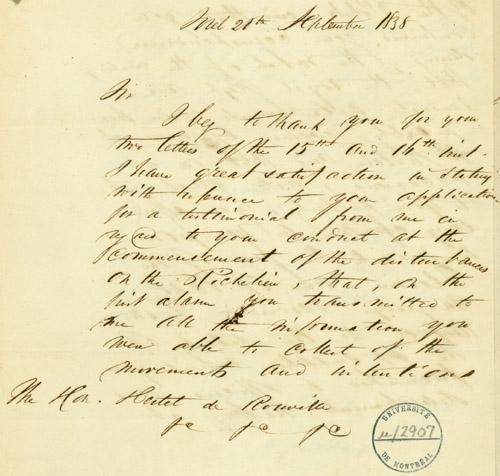 Mtl 20th September 1838
Sir
I beg to thank you for your
two letters of the 15th and 16th inst.
I have great satisfaction in stating
with reference to your application
for a testimonial from me in
regard to your conduct at the
commencement of the disturbances
on the Richelieu, that, on the
first alarm you transmitted to
me all the information you
were able to collect of the
movements and intentions
The Hon. Hertel de Rouville
&c &c &c
UNIVERSITÉ
/2907
DE MONTRÉAL